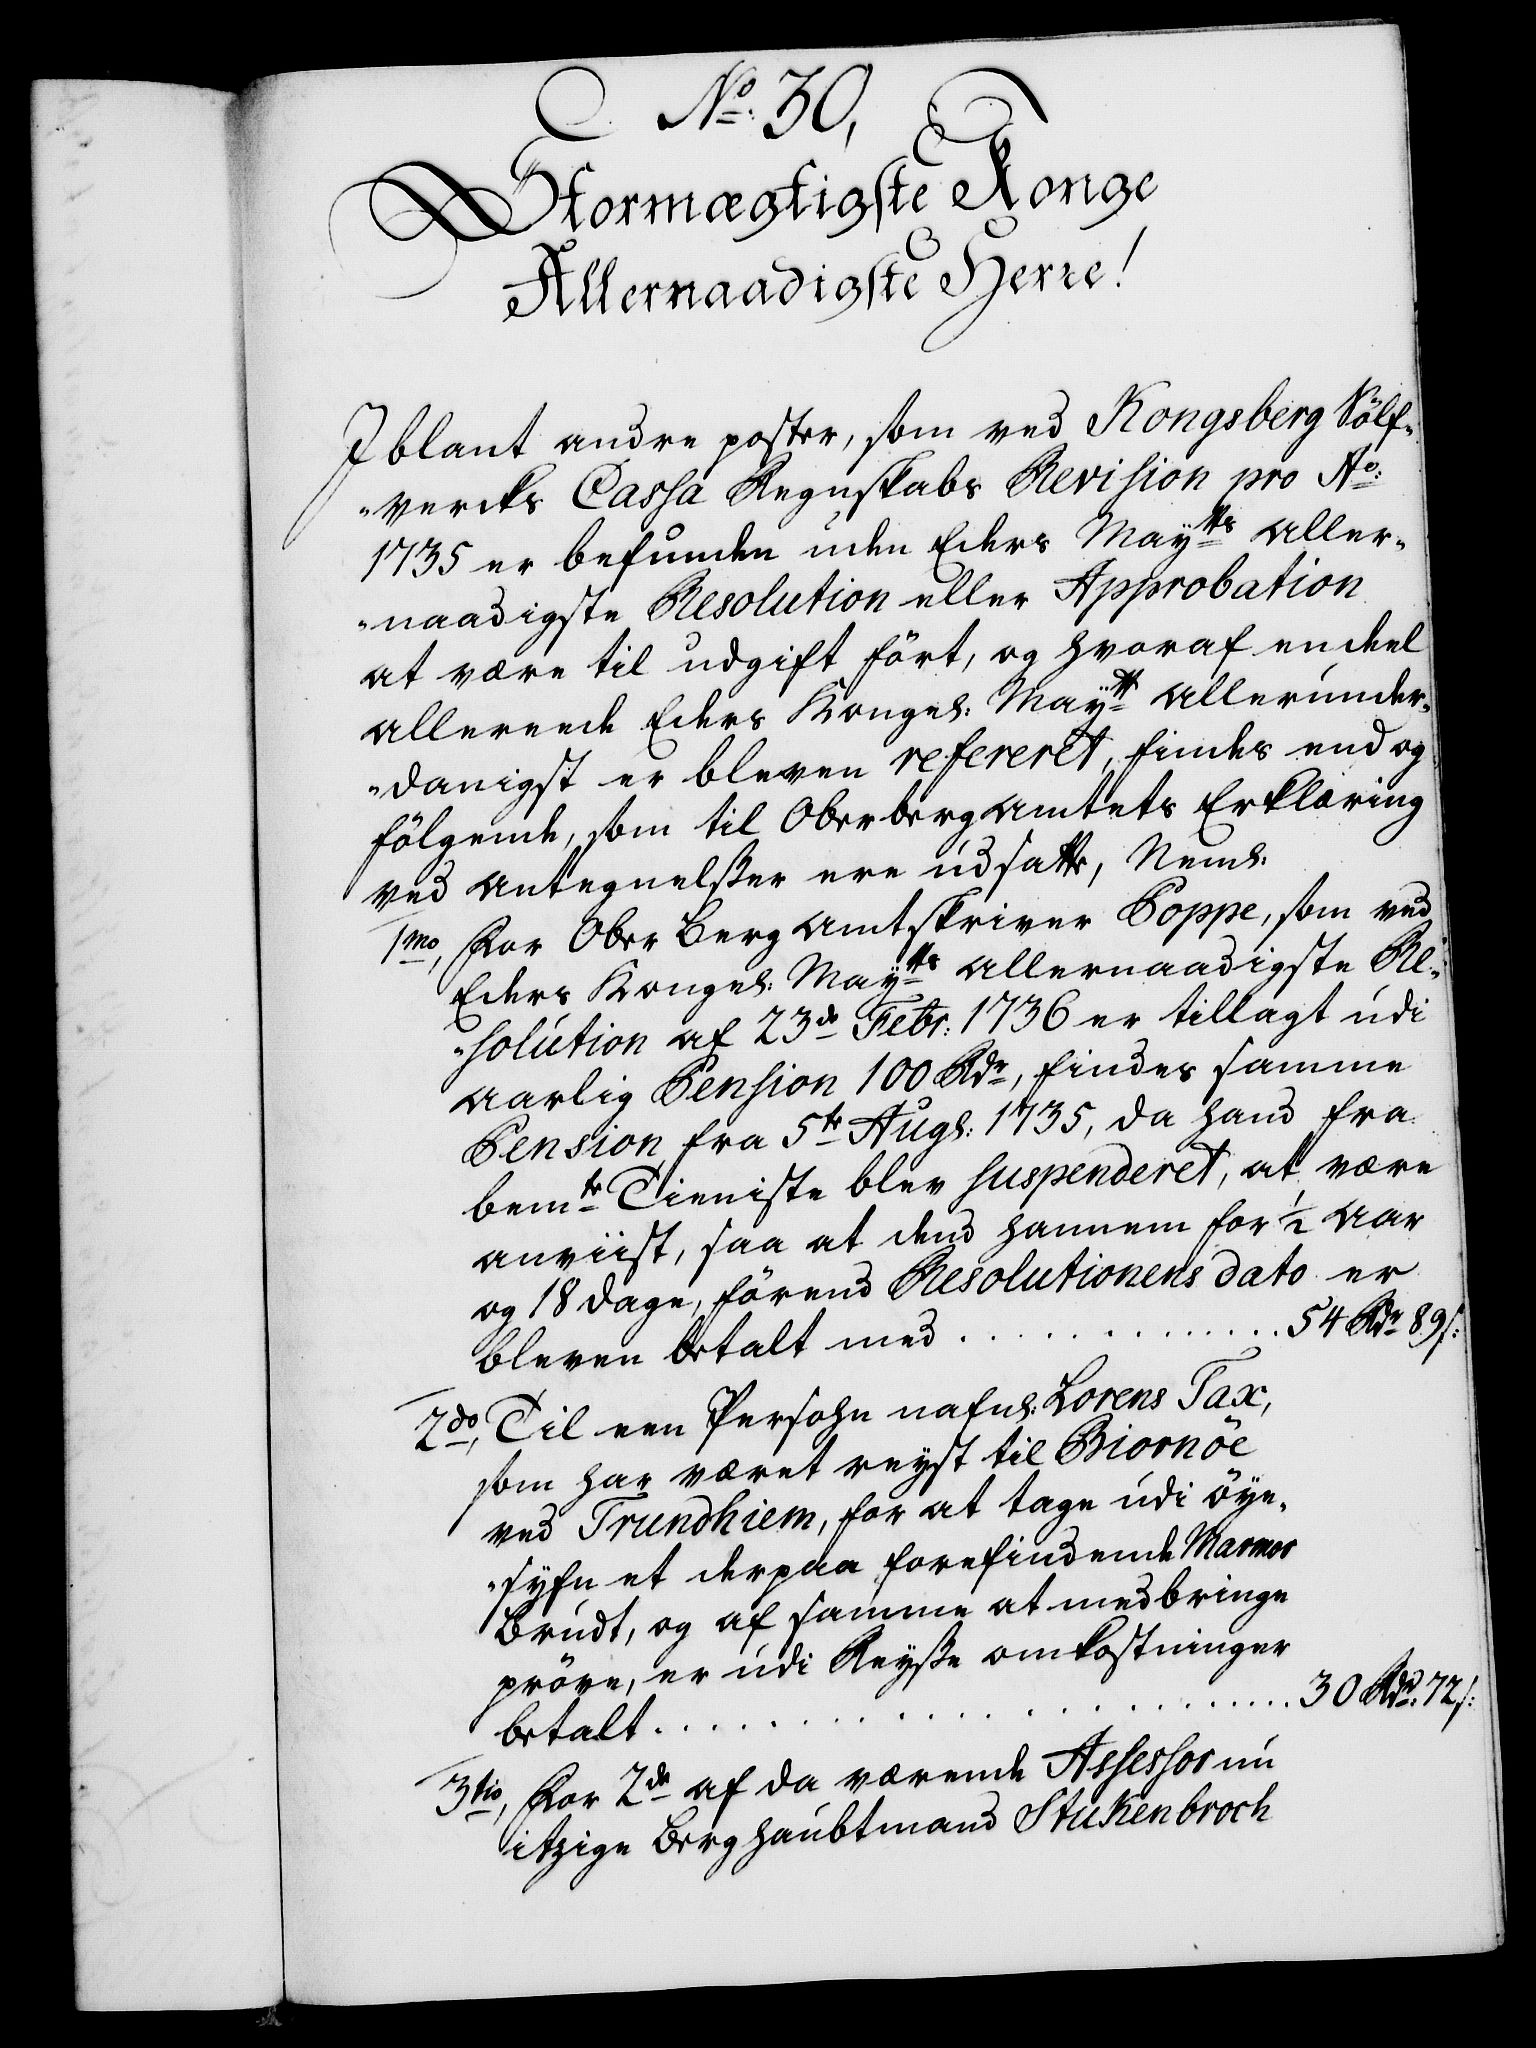 No: 30,
Stormægtigste Konge
Allernaadigste Herre!
Iblant andre poster, som ved Kongsberg Sölf-
-vercks Cassa Regnskabs Revision pro Ao:
1735 er befunden uden Eders Mayts aller-
-naadigste Resolution eller Approbation
at være til udgift fört, og hvoraf endeel
allereede Eders Kongel: Mayt allerunder-
-danigst er bleven refereret, findes end og
fölgende, som til Oberbergamtets Erklæring
ved antegnelsser ere udsatte, Neml:
1mo, For Ober Berg amtskriver Poppe, som ved
Eders Kongel: Mayts allernaadigste Re-
-solution af 23de Febr: 1736 er tillagt udi
aarlig Pension 100 Rdr, findes samme
Pension fra 5te Augs: 1735, da hand fra
bemte Tieniste blev suspenderet, at være
anviist, saa at dend hannem for ½ aar
og 18 dage, förend Resolutionens dato er
bleven betalt med . . . . . . . . . . . . . . 54 Rdr 89 s:
2do, Til een Persohn nafnl: Lorens Tax,
som har været reyst til Biornöe
ved Trundhiem, for at tage udi öye-
-syfn et derpaa forefindende Marmor
Brudt, og af samme at medbringe
pröve, er udi Reysse omkostninger
betalt . . . . . . . . . . . . . . . . . . . . 30 Rdr: 72 s:
3tio, For 2de af da værende Assessor nu
itzige Berghaubtmand Stukenbroch